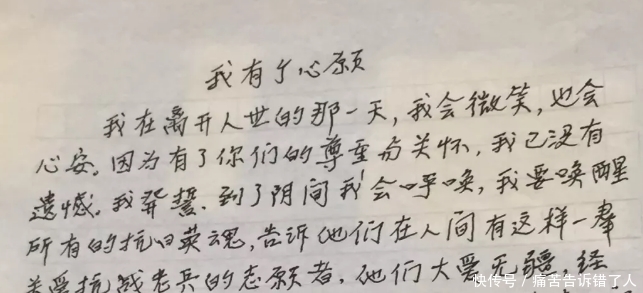 我有个心愿
我在离开人世的那一天，我会微笑，也会
心安。因为有了你们的尊重与关怀，我已没有
遗憾。我发誓．到了阴间我会呼唤，我要唤醒
所有的抗日英魂，告诉他们在人间有这样一群
关爱抗战老兵的志愿者，他们大爱无疆 经
快传号/痛苦告诉错了人